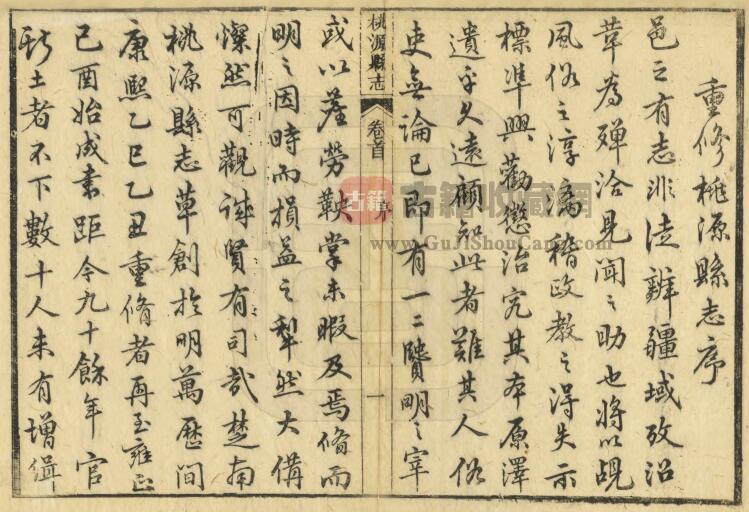 重修桃源縣志序
邑之有志非徒辨疆域攷沿
革為殫洽見聞之助也將以覘
風俗之淳漓稽政教之得失示
標準興勸懲治究其本原澤
遺乎久遠顧知此者難其人俗
吏無論已即有一二賢明之宰
桃源縣志
卷首
序
一
或以差勞鞅掌未暇及焉脩而
明之因時而損益之犁然大備
燦然可觀誠賢有司哉楚南
桃源縣志草創於明萬歷間
康熙乙巳乙丑重脩者再至雍正
己酉始成書距今九十餘年官
斯土者不下數十人未有增緝
古籍
古籍收藏網
www.GuJiShouCang.com